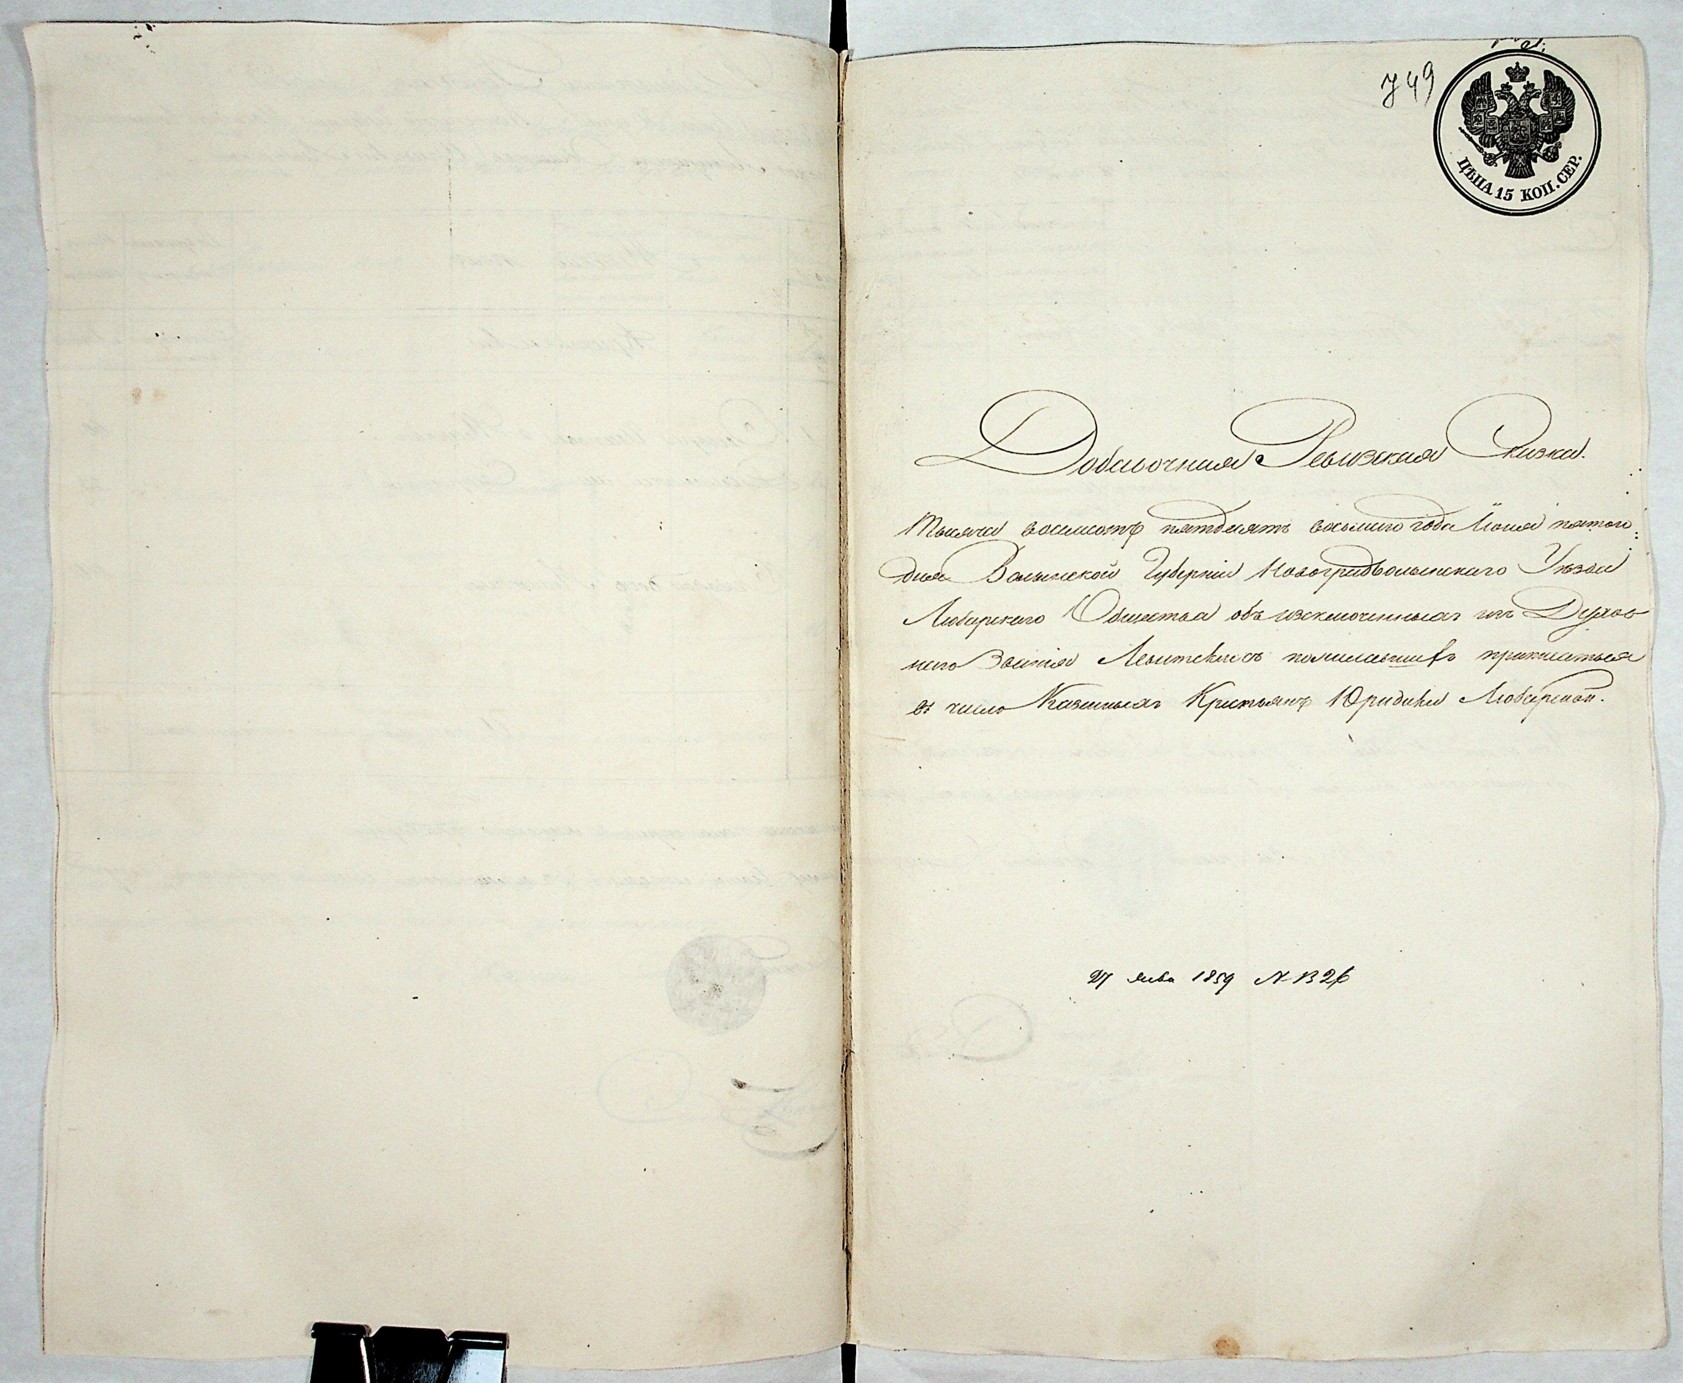 749
ЦѢНА 15 КОП. СЕР.
Добавочная Ревизская Сказка.
Тысяча восемсотъ пятдесятъ восьмаго года Июня пятого
дня Волынской Губерніи Новоградволынскаго Уѣзда
Любарского Общества объ изключенныхъ изъ Духов
ного Званія Левитскихъ пожелавшихъ приписаться
въ число Казенныхъ Крестьянъ Юридики Любарской.
27 Янва 1859 N 1326